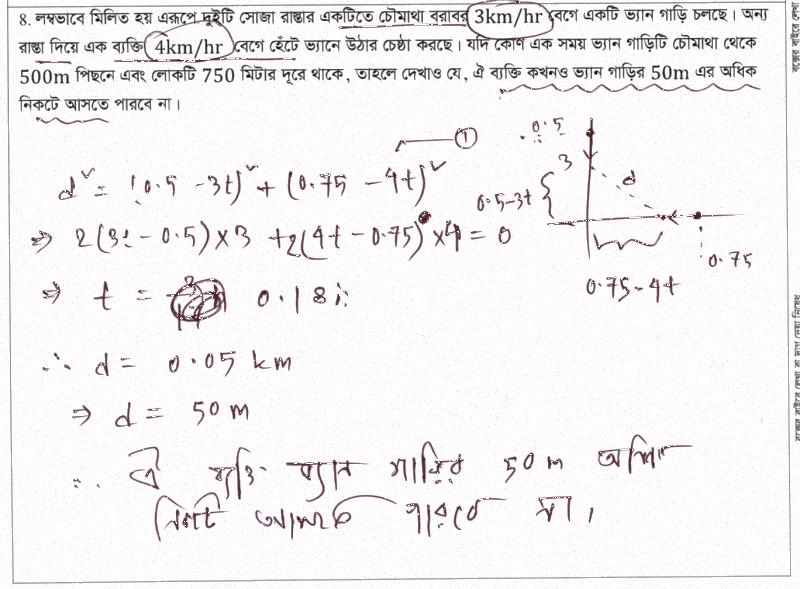 8. লম্বভাবে মিলিত হয় এরূপে দুইটি সোজা রাস্তার একটিতে চৌমাথা বরাবর 3km/hr বেগে একটি ভ্যান গাড়ি চলছে। অন্য
রাস্তা দিয়ে এক ব্যক্তি 4km/hr বেগে হেঁটে ভ্যানে উঠার চেষ্ঠা করছে। যদি কোণ এক সময় ভ্যান গাড়িটি চৌমাথা থেকে
500m পিছনে এবং লোকটি 750 মিটার দূরে থাকে, তাহলে দেখাও যে, ঐ ব্যক্তি কখনও ভ্যান গাড়ির 50m এর অধিক
নিকটে আসতে পারবে না।
①
d² = (0.5 - 3t)² + (0.75 - 4t)²
⇒ 2(3t - 0.5) × 3 + 2(4t - 0.75) × 4 = 0
⇒ t = 0.18
∴ d = 0.05 km
⇒ d = 50 m
∴ ঐ ব্যক্তি ভ্যান গাড়ির 50 m অধিক
নিকটে আসতে পারবে না।
0.5
3
d
0.5-3t
0.75
0.75-4t